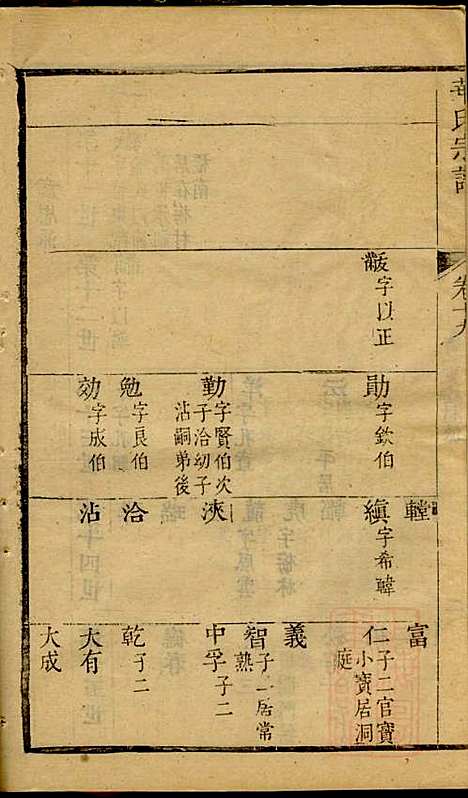 華氏宗譜
卷十九
黻字以正
勛字欽伯
勤字賢伯次
子洽幼子
沾嗣弟後
勉字良伯
効字成伯
輊
縝字希韡
浹
洽
沾
富
仁子二官寶
小寶居洞
庭
義
智子一居常
熟
中孚子二
乾子二
大有
大成